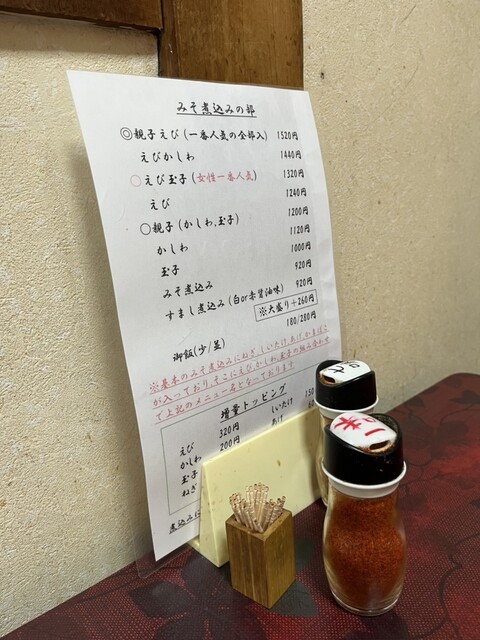 みそ煮込みの部
◎親子えび(一番人気の全部入) 1520円
えびかしわ 1440円
○えび玉子(女性一番人気) 1320円
えび 1240円
○親子(かしわ、玉子) 1200円
かしわ 1120円
玉子 1000円
みそ煮込み 920円
すまし煮込み(白or赤醤油味) 920円
※大盛り+260円
御飯(少/並) 180/280円
※基本のみそ煮込みにねぎ、しいたけ、あげ、かまぼこ
が入っており、そこにえび、かしわ、玉子の組み合わせ
で上記のメニュー名となっております。
増量トッピング
えび 320円 しいたけ 130
かしわ 200円 あげ
玉子
ねぎ
煮込みに
一味